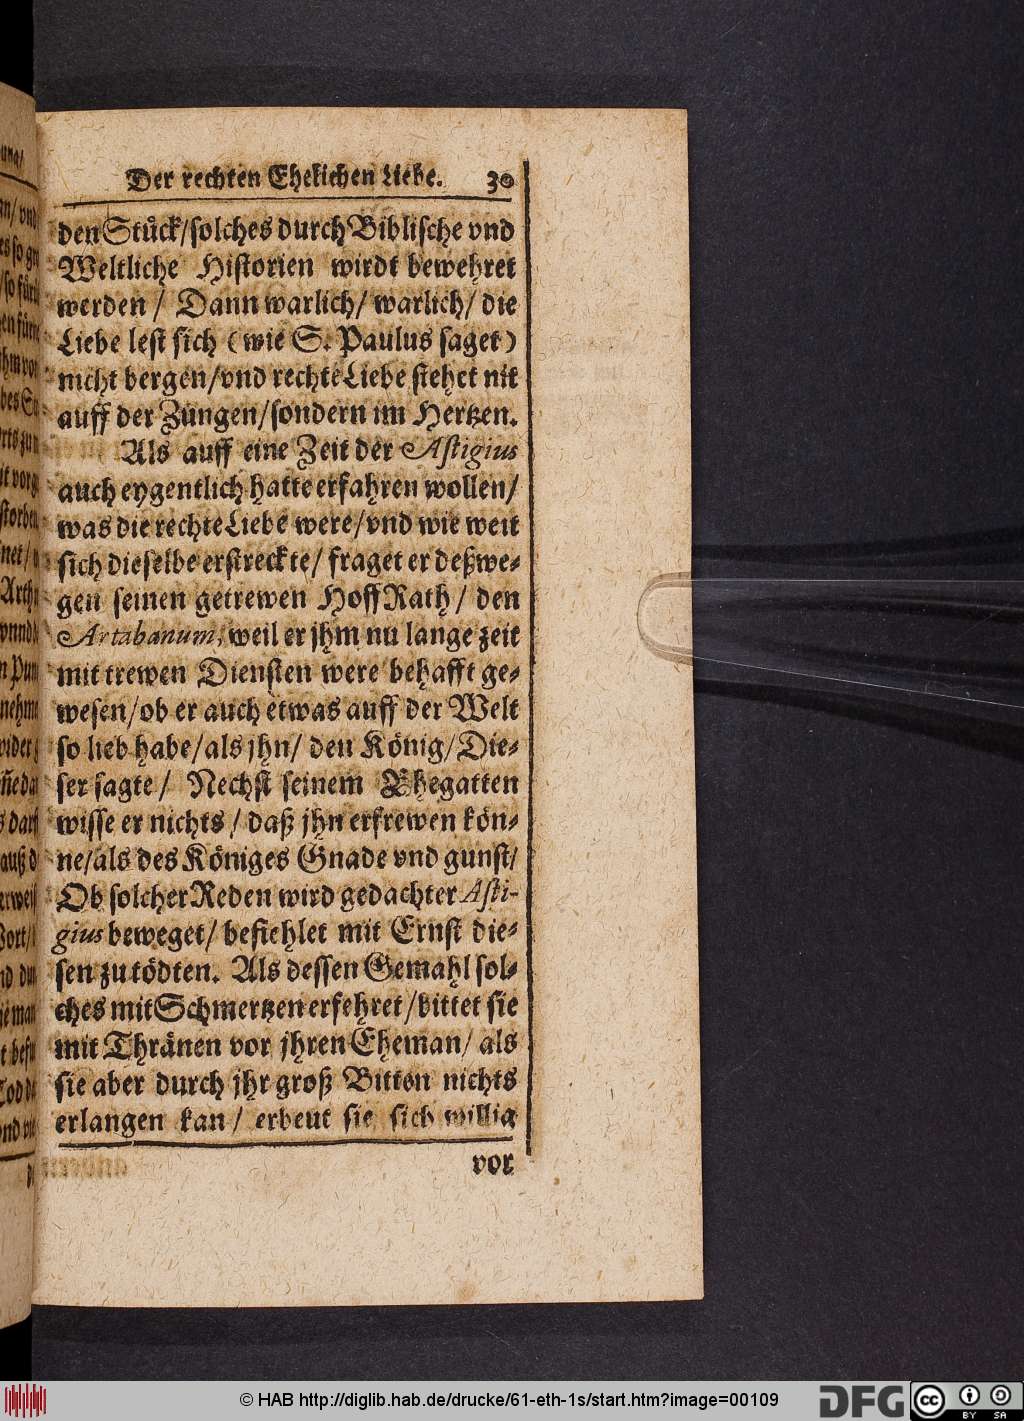 Der rechten Ehelichen Liebe. 30
den Stuͤck/solches durch Biblische vnd
Weltliche Historien wirdt bewehret
werden / Dann warlich/ warlich/ die
Liebe lest sich (wie S. Paulus saget)
nicht bergen/vnd rechte Liebe stehet nit
auff der Zungen/sondern im Hertzen.
Als auff eine Zeit der Astigius
auch eygentlich hatte erfahren wollen/
was die rechte Liebe were/vnd wie weit
sich dieselbe erstreckte/ fraget er deßwe-
gen seinen getrewen Hoff Rath/ den
Artabanum, weil er jhm nu lange zeit
mit trewen Diensten were behafft ge-
wesen/ob er auch etwas auff der Welt
so lieb habe/als jhn/ den König/Die-
ser sagte/ Nechst seinem Ehegatten
wisse er nichts/ daß jhn erfrewen kön-
ne/als des Königes Gnade vnd gunst/
Ob solcher Reden wird gedachter Asti-
gius beweget/ befiehlet mit Ernst die-
sen zu tödten. Als dessen Gemahl sol-
ches mit Schmertzen erfehret/bittet sie
mit Thränen vor jhren Eheman/ als
sie aber durch jhr groß Bitten nichts
erlangen kan/ erbeut sie sich willig
vor
© HAB http://diglib.hab.de/drucke/61-eth-1s/start.htm?image=00109
DFG
cc
BY SA